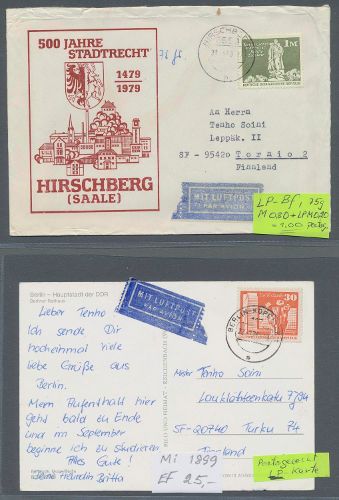 500 JAHRE
STADTRECHT
1479
1979
HIRSCHBERG
(SAALE)
1M
An Herrn
Tenho Soini
Leppäk. II
SF - 95420 Tornio 2
Finnland
MIT LUFTPOST
PAR AVION
LP-Bf, 75g
M 0,80 + LP M 0,20
= 1,00
Berlin - Hauptstadt der DDR
Berliner Rathaus
MIT LUFTPOST
PAR AVION
30
Lieber Tenho
Ich sende Dir
hocheinmal viele
liebe Grüße aus
Berlin.
Mein Aufenthalt hier
geht bald zu Ende
und im September
beginne ich zu studieren
Alles Gute!
Deine Freundin Britta
Tenho Soini
SF-20740 Turku 74
Finland
Mi 1899
EF 25,-
Portogerecht
LP-Karte